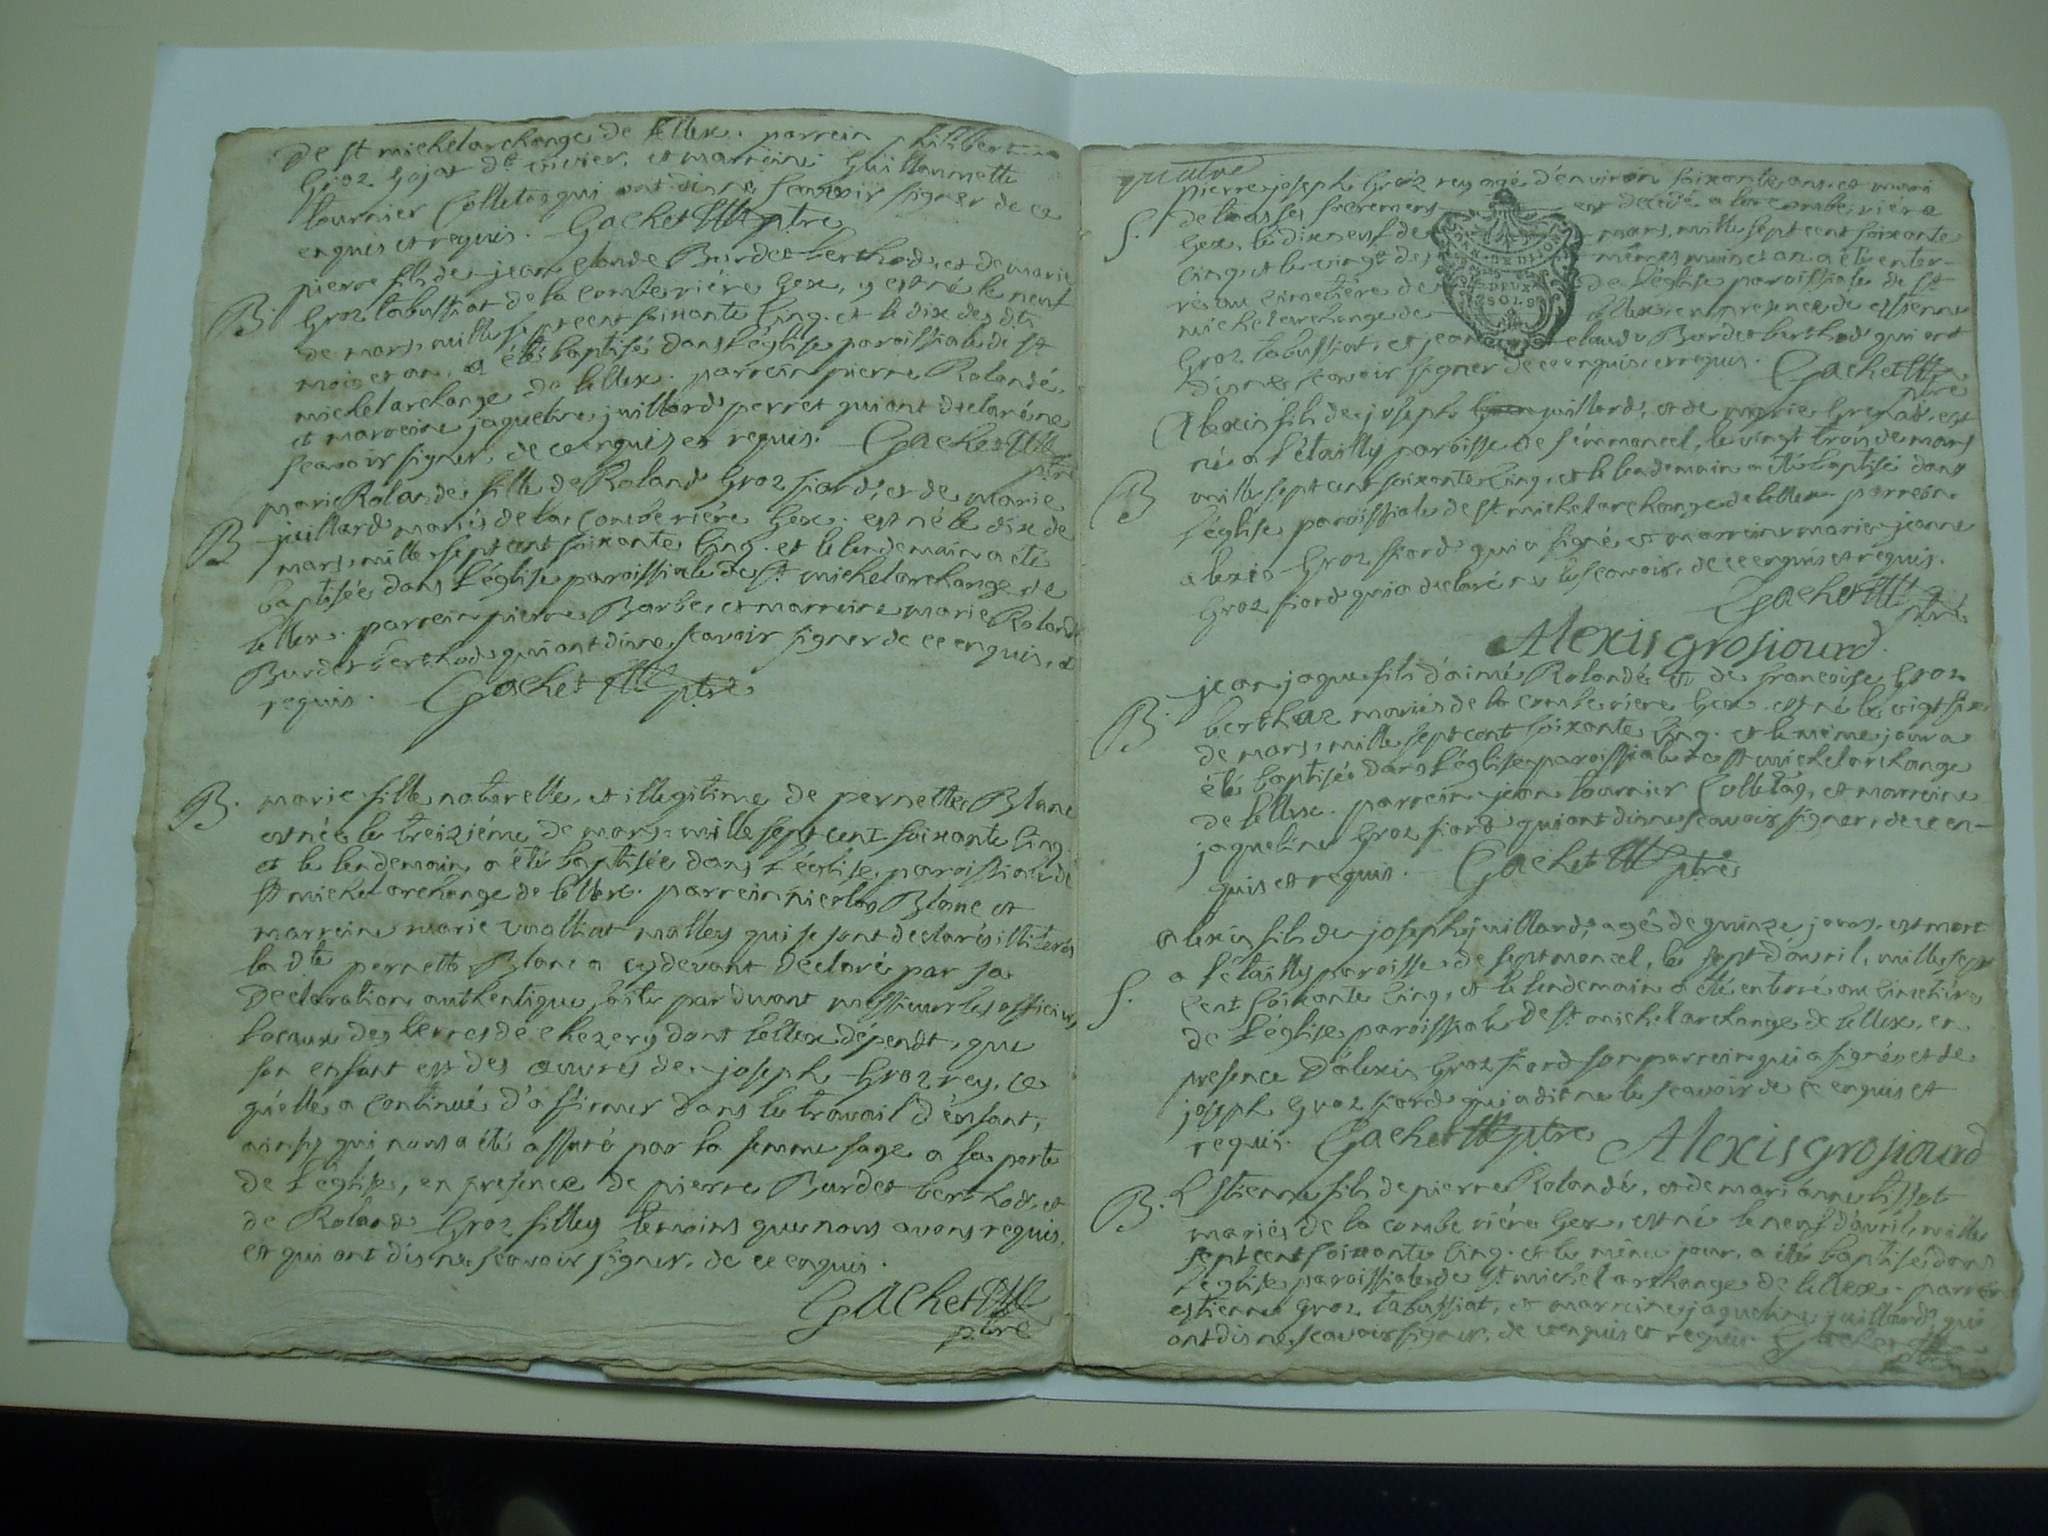 De st michel archange de lellex. parrein philibert
Groz Gojat dt cuivier, et marreine Guillaumette
tournier Colletaz qui ont dis ne scavoir signer de ce
enquis et requis. Gachet ptre
B. pierre fils de jean claude Burdet berthod, et de marie
Groz tabussiat de la combe riére Gex, y est né le neuf
de mars, mille sept cent soixante cinq. et le dix des dits
mois et an, a été baptisé dans l'église paroissiale de st
michel archange de lellex. parrein pierre Rolandé,
et marreine jaqueline juillard perret qui ont declaré ne
scavoir signer, de ce enquis et requis. Gachet
ptre
B marie Rolande fille de Roland Groz fiard, et de marie
juillard mariés de la combe riére Gex. est né le dix de
mars, mille sept cent soixante cinq. et le lendemain a été
baptisée dans l'église paroissiale de st michel archange de
lellex. parrein pierre Barbe, et marreine marie Rolande
Burdet berthod qui ont dis ne scavoir signer de ce enquis, et
requis. Gachet ptre
B. marie fille naturelle, et illegitime de pernette Blanc
est née le treiziéme de mars, mille sept cent soixante cinq.
et le lendemain a été baptisée dans l'église paroissiale de
st michel archange de lellex. parrein nicolas Blanc et
marreine marie malley qui se sont declarés illiterés
la dte pernette Blanc a cy devant déclaré par sa
Declaration authentique, faite par devant messieurs les officiers
locaux des terres de chezery dont lellex dépendt, que
son enfant est des œuvres de joseph Groz rey, ce
qu'elle a continué d'affirmer dans le travail d'enfant,
ainsy qui nous a été assuré par la femme sage a la porte
de l'église, en présence de pierre Burdet berthod, et
de Roland Groz filley temoins que nous avons requis,
et qui ont dis ne scavoir signer, de ce enquis.
Gachet
ptre
quatre
pierre joseph Groz rey agé d'environ soixante ans, et muni
S. de tous ses sacremens est decedé a la combe riére
Gex, le dixneuf de mars, mille sept cent soixante
cinq, et le vingt des mêmes mois et an a été enter-
ré au cimetiére de de l'église paroissiale de st
michel archange de lellex, en presence de estienne
Groz tabussiat, et jean claude Burdet berthod qui ont
dis ne scavoir signer de ce enquis et requis. Gachet
ptre
Alexis fils de joseph juillard, et de marie Grenard, est
né a l'étailly paroisse de s'emmoncel, le vingt trois de mars
B mille sept cent soixante cinq, et le lendemain a été baptisé dans
l'église paroissiale de st michel archange de lellex. parrein
alexis Groz fiard qui a signé et marreine marie jeanne
Groz fiard qui a declaré ne le scavoir, de ce enquis et requis.
Gachet
ptre
Alexis grosjourd
jean jaque fils d'aimé Rolandé et de françoise Groz
B. berthaz mariés de la combe riére Gex. est né le vigt six
de mars, mille sept cent soixante cinq. et le même jour a
été baptisé dans l'église paroissiale de st michel archange
de lellex. parrein jean tournier Colletaz, et marreine
jaqueline Groz fiard qui ont dis ne scavoir signer, de ce en-
quis et requis. Gachet ptre
alexis fils de joseph juillard, agé de quinze jours, est mort
a l'étailly paroisse de septmoncel, le sept d'avril, mille sept
S. cent soixante cinq, et le lendemain a été enterré au cimetiére
de l'église paroissiale de st michel archange de lellex, en
presence d'alexis Groz fiard son parrein qui a signé, et de
joseph Groz fiard qui a dit ne le scavoir de ce enquis et
requis. Gachet ptre Alexis grosjourd
B. Estienne fils de pierre Rolandé, et de mari anne
mariés de la combe riére Gex, est né le neuf d'avril, mille
sept cent soixante cinq. et le même jour, a été baptisé dans
l'église paroissiale de st michel archange de lellex. parrein
estienne Groz tabussiat, et marreine jaqueline juillard, qui
ont dis ne scavoir signer, de ce enquis et requis. Gachet
ptre